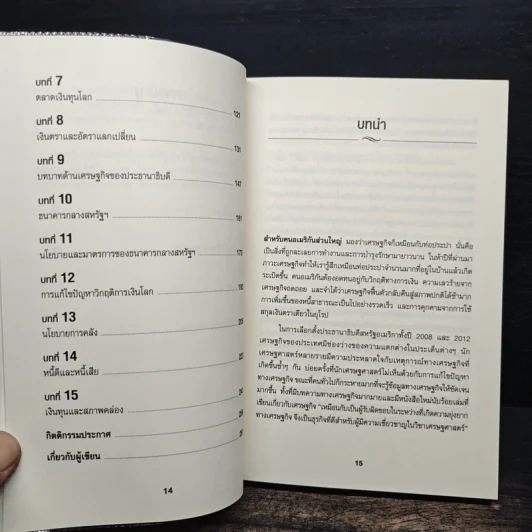 บทที่ 7
ตลาดเงินทุนโลก 121
บทที่ 8
เงินตราและอัตราแลกเปลี่ยน 131
บทที่ 9
บทบาทด้านเศรษฐกิจของประธานาธิบดี 147
บทที่ 10
ธนาคารกลางสหรัฐฯ 161
บทที่ 11
นโยบายและมาตรการของธนาคารกลางสหรัฐฯ
บทที่ 12
การแก้ไขปัญหาวิกฤติการเงินโลก
บทที่ 13
นโยบายการคลัง
บทที่ 14
หนี้ดีและหนี้เสีย
บทที่ 15
เงินทุนและสภาพคล่อง
กิตติกรรมประกาศ
เกี่ยวกับผู้เขียน
14
บทนำ
สำหรับคนอเมริกันส่วนใหญ่ มองว่าเศรษฐกิจก็เหมือนกับท่อประปา นั่นคือ
เป็นสิ่งที่ถูกละเลยการทำงานและการบำรุงรักษามายาวนาน ในห้าปีที่ผ่านมา
ภาวะเศรษฐกิจทำให้เรารู้สึกเหมือนท่อประปาจำนวนมากที่อยู่ในบ้านแล้วเกิด
ระเบิดขึ้น คนอเมริกันต้องอดทนอยู่กับวิกฤติทางการเงิน ความเลวร้ายจาก
เศรษฐกิจถดถอย และจำได้ว่าเศรษฐกิจฟื้นตัวกลับคืนสู่สภาพปกติได้ช้ามาก
การเพิ่มขึ้นของหนี้สาธารณะเป็นไปอย่างรวดเร็ว และการคุกคามจากการใช้
สกุลเงินตราเดียวในยุโรป
ในการเลือกตั้งประธานาธิบดีสหรัฐอเมริกาทั้งปี 2008 และ 2012
เศรษฐกิจของประเทศมีช่องว่างของความแตกต่างในประเด็นต่างๆ นัก
เศรษฐศาสตร์หลายรายมีความประหลาดใจกับเหตุการณ์ทางเศรษฐกิจที่
เกิดขึ้นซ้ำๆ กัน บ่อยครั้งที่นักเศรษฐศาสตร์ไม่เห็นด้วยกับการแก้ไขปัญหา
ทางเศรษฐกิจ ขณะที่คนทั่วไปก็กระหายมากที่จะรู้ข้อมูลทางเศรษฐกิจให้ชัดเจน
มากขึ้น ทั้งที่มีบทความทางเศรษฐกิจมากมายและมีหนังสือใหม่นับร้อยเล่มที่
เขียนเกี่ยวกับเศรษฐกิจ "เหมือนกับเป็นผู้รับผิดชอบในระหว่างที่เกิดความยุ่งยาก
ทางเศรษฐกิจ จึงเป็นธุรกิจที่ดีสำหรับผู้มีความเชี่ยวชาญในวิชาเศรษฐศาสตร์"
15